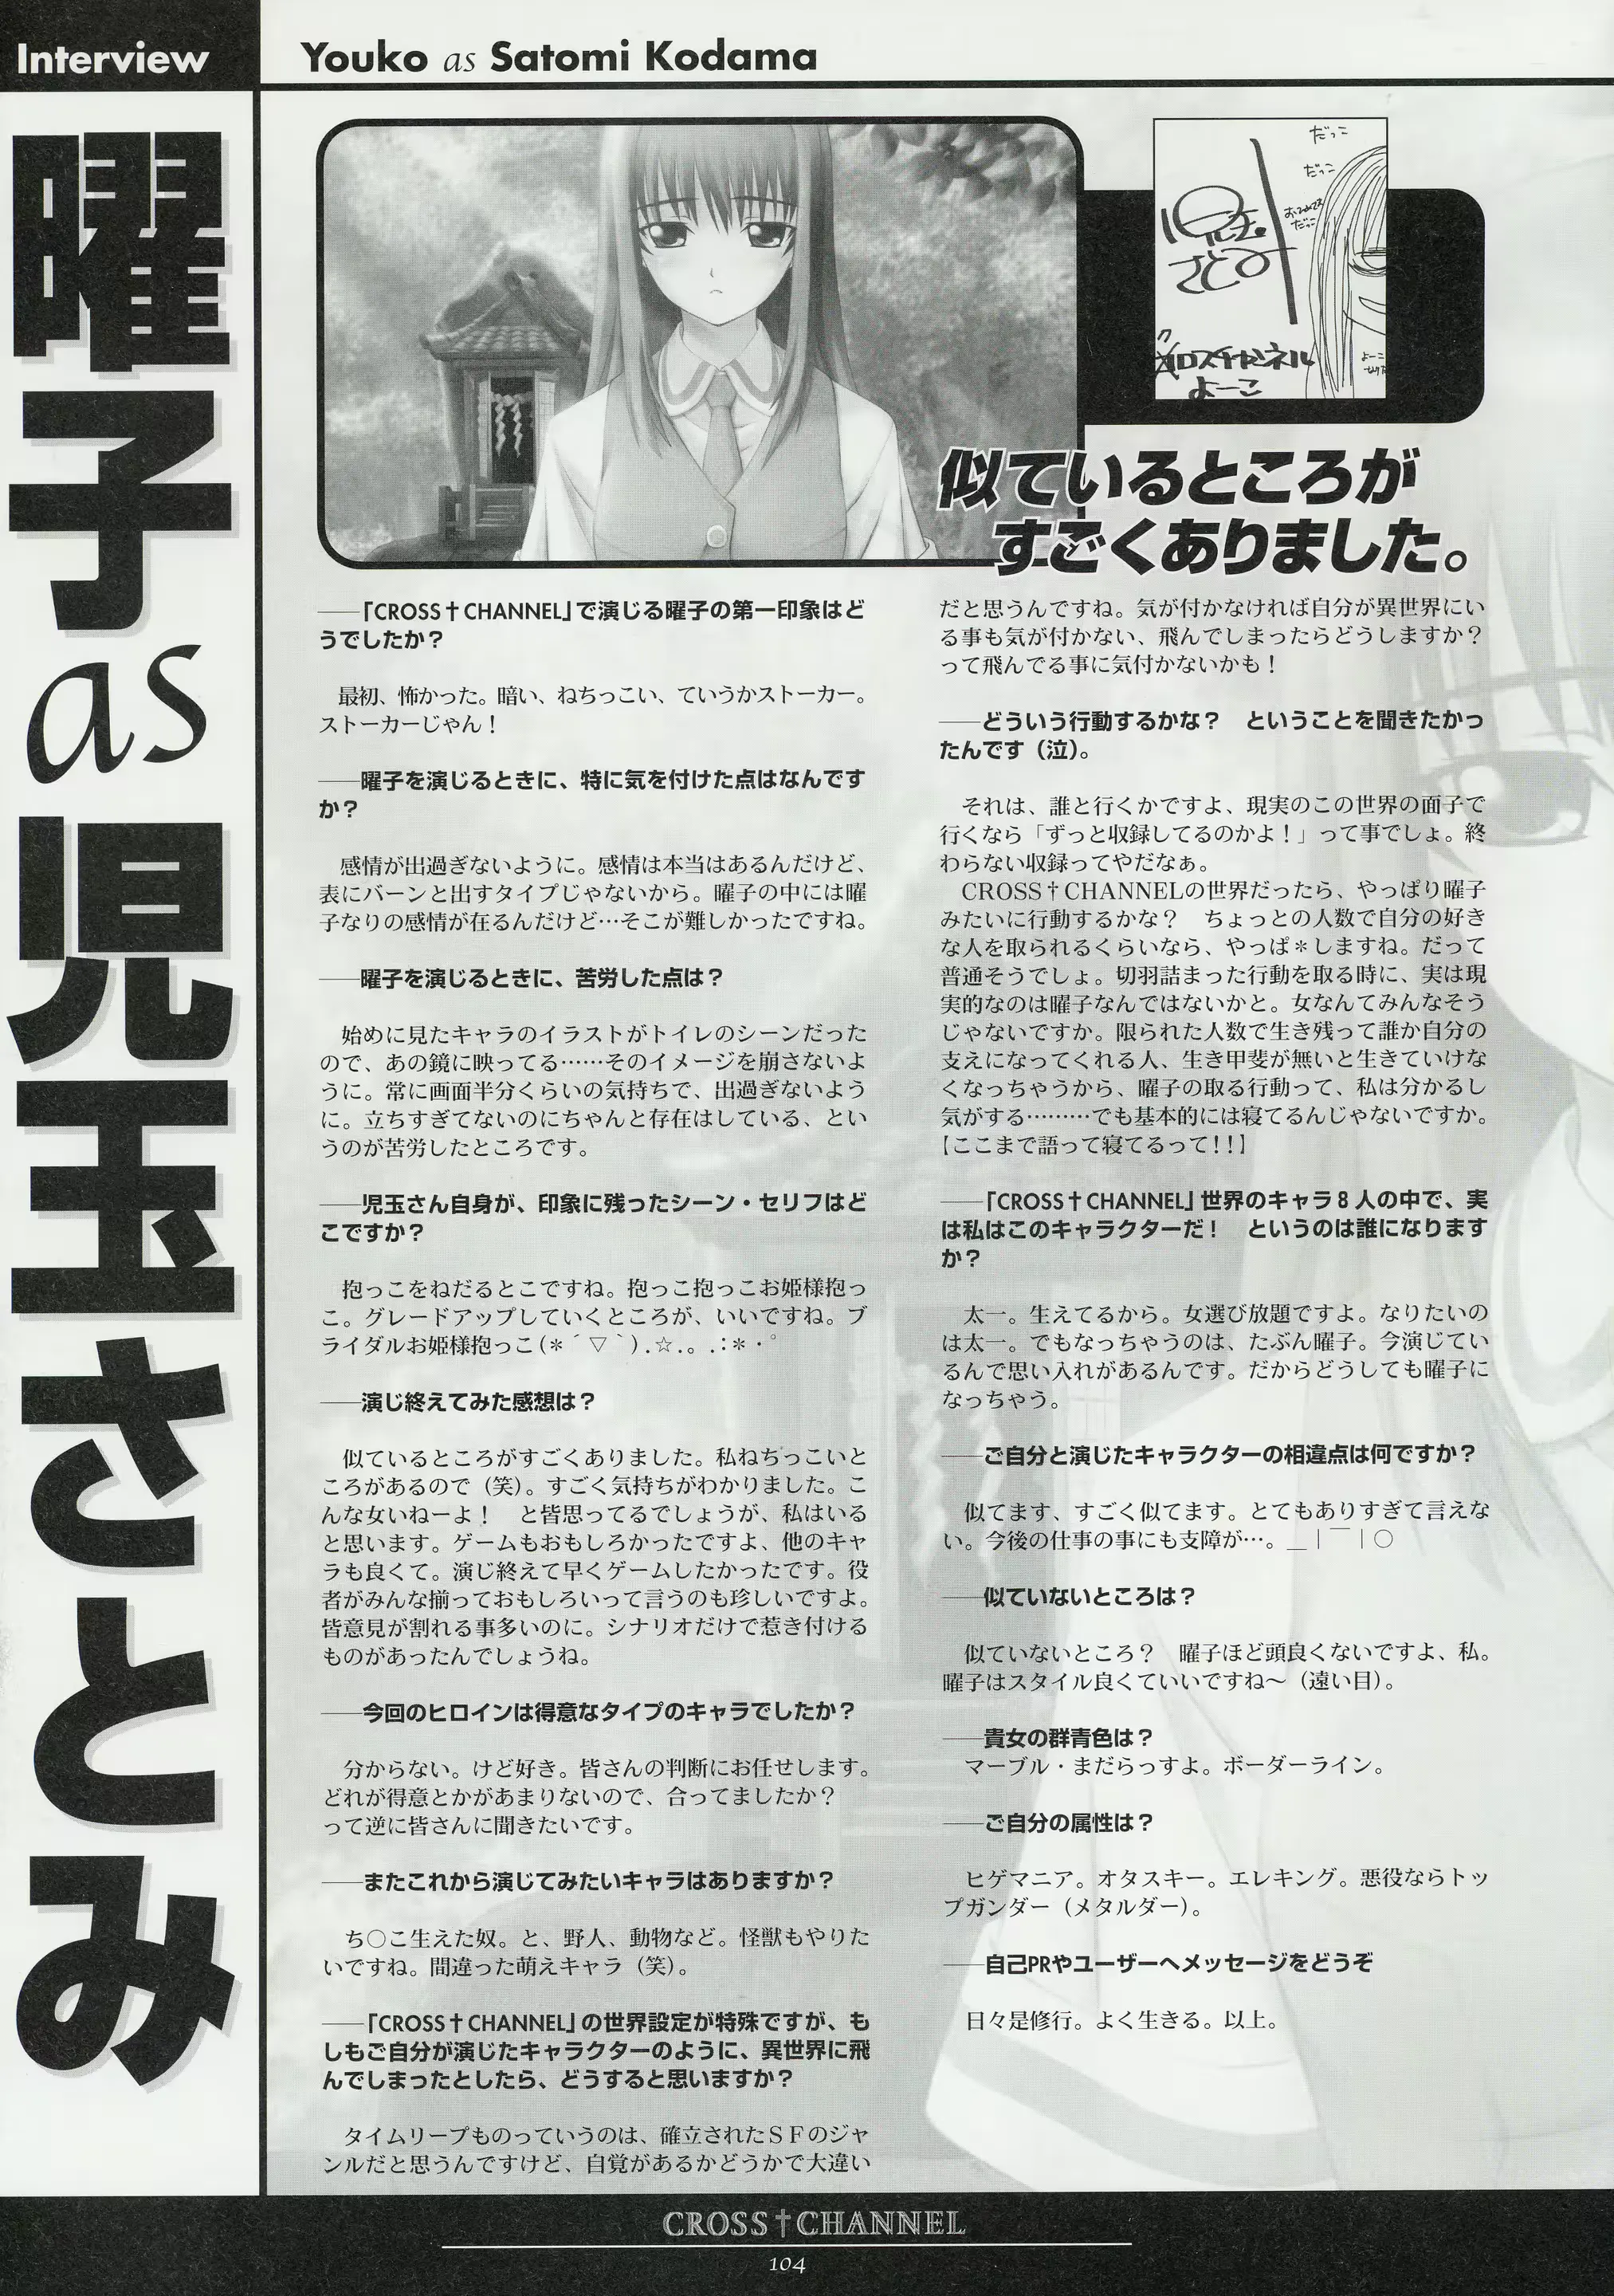 Interview
Youko as Satomi Kodama
曜子 as 児玉さとみ
だっこ
だっこ
おひめさま
だっこ
児玉
さとみ
クロスチャンネル
よーこ
似ているところが
すごくありました。
――「CROSS†CHANNEL」で演じる曜子の第一印象はど
うでしたか？
最初、怖かった。暗い、ねちっこい、ていうかストーカー。
ストーカーじゃん！
――曜子を演じるときに、特に気を付けた点はなんです
か？
感情が出過ぎないように。感情は本当はあるんだけど、
表にバーンと出すタイプじゃないから。曜子の中には曜
子なりの感情が在るんだけど…そこが難しかったですね。
――曜子を演じるときに、苦労した点は？
始めに見たキャラのイラストがトイレのシーンだった
ので、あの鏡に映ってる……そのイメージを崩さないよ
うに。常に画面半分くらいの気持ちで、出過ぎないよう
に。立ちすぎてないのにちゃんと存在はしている、とい
うのが苦労したところです。
――児玉さん自身が、印象に残ったシーン・セリフはど
こですか？
抱っこをねだるとこですね。抱っこ抱っこお姫様抱っ
こ。グレードアップしていくところが、いいですね。ブ
ライダルお姫様抱っこ(＊´▽｀).☆.。.:＊・゜
――演じ終えてみた感想は？
似ているところがすごくありました。私ねちっこいと
ころがあるので（笑）。すごく気持ちがわかりました。こ
んな女いねーよ！　と皆思ってるでしょうが、私はいる
と思います。ゲームもおもしろかったですよ、他のキャ
ラも良くて。演じ終えて早くゲームしたかったです。役
者がみんな揃っておもしろいって言うのも珍しいですよ。
皆意見が割れる事多いのに。シナリオだけで惹き付ける
ものがあったんでしょうね。
――今回のヒロインは得意なタイプのキャラでしたか？
分からない。けど好き。皆さんの判断にお任せします。
どれが得意とかがあまりないので、合ってましたか？
って逆に皆さんに聞きたいです。
――またこれから演じてみたいキャラはありますか？
ち○こ生えた奴。と、野人、動物など。怪獣もやりた
いですね。間違った萌えキャラ（笑）。
――「CROSS†CHANNEL」の世界設定が特殊ですが、も
しもご自分が演じたキャラクターのように、異世界に飛
んでしまったとしたら、どうすると思いますか？
タイムリープものっていうのは、確立されたＳＦのジャ
ンルだと思うんですけど、自覚があるかどうかで大違い
だと思うんですね。気が付かなければ自分が異世界にい
る事も気が付かない、飛んでしまったらどうしますか？
って飛んでる事に気付かないかも！
――どういう行動するかな？　ということを聞きたかっ
たんです（泣）。
それは、誰と行くかですよ、現実のこの世界の面子で
行くなら「ずっと収録してるのかよ！」って事でしょ。終
わらない収録ってやだなぁ。
CROSS†CHANNELの世界だったら、やっぱり曜子
みたいに行動するかな？　ちょっとの人数で自分の好き
な人を取られるくらいなら、やっぱ＊しますね。だって
普通そうでしょ。切羽詰まった行動を取る時に、実は現
実的なのは曜子なんではないかと。女なんてみんなそう
じゃないですか。限られた人数で生き残って誰か自分の
支えになってくれる人、生き甲斐が無いと生きていけな
くなっちゃうから、曜子の取る行動って、私は分かるし
気がする………でも基本的には寝てるんじゃないですか。
【ここまで語って寝てるって！！】
――「CROSS†CHANNEL」世界のキャラ８人の中で、実
は私はこのキャラクターだ！　というのは誰になります
か？
太一。生えてるから。女選び放題ですよ。なりたいの
は太一。でもなっちゃうのは、たぶん曜子。今演じてい
るんで思い入れがあるんです。だからどうしても曜子に
なっちゃう。
――ご自分と演じたキャラクターの相違点は何ですか？
似てます、すごく似てます。とてもありすぎて言えな
い。今後の仕事の事にも支障が…。＿｜￣｜○
――似ていないところは？
似ていないところ？　曜子ほど頭良くないですよ、私。
曜子はスタイル良くていいですね～（遠い目）。
――貴女の群青色は？
マーブル・まだらっすよ。ボーダーライン。
――ご自分の属性は？
ヒゲマニア。オタスキー。エレキング。悪役ならトッ
プガンダー（メタルダー）。
――自己PRやユーザーへメッセージをどうぞ
日々是修行。よく生きる。以上。
CROSS†CHANNEL
104